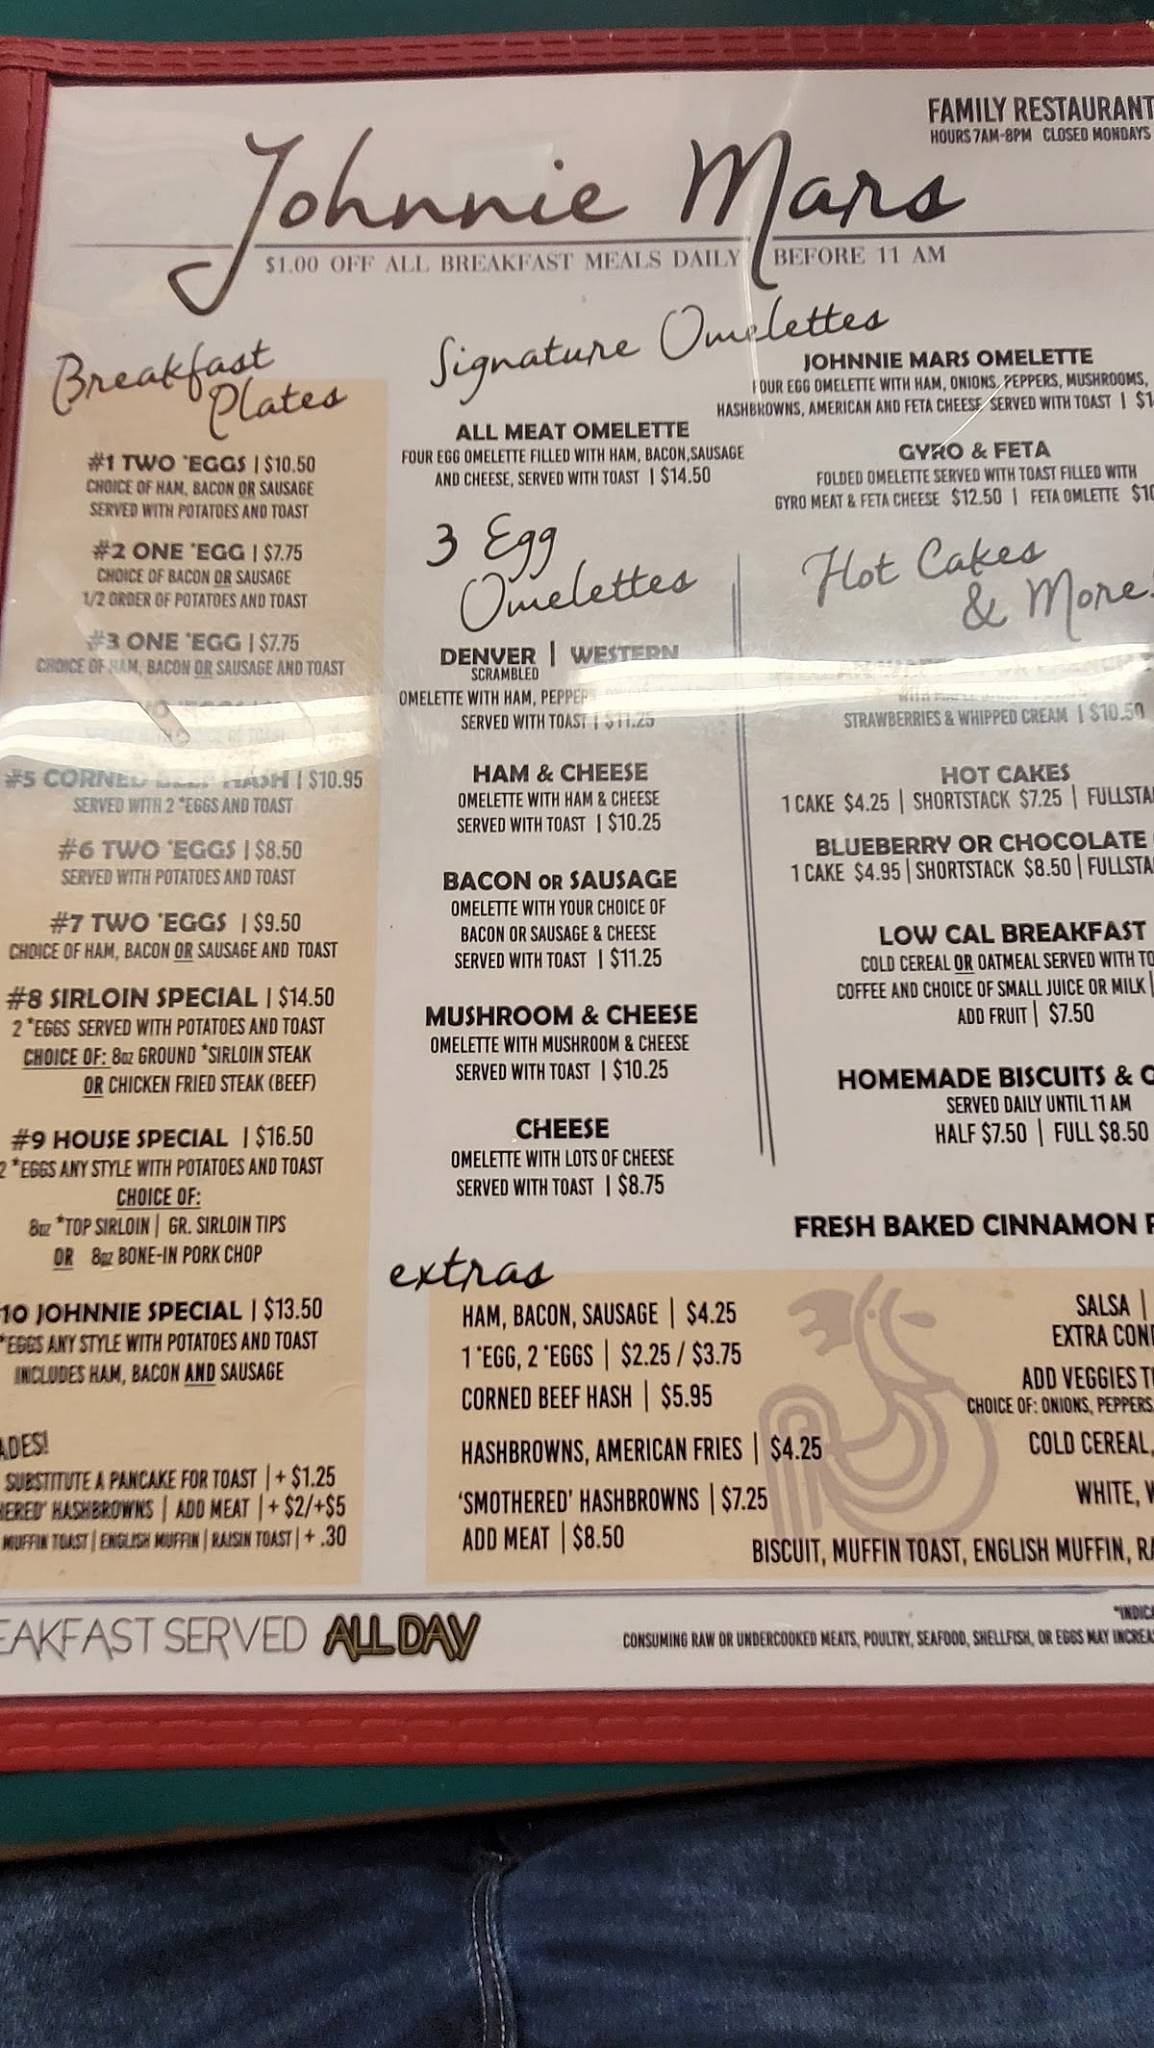 FAMILY RESTAURANT
HOURS 7AM-8PM CLOSED MONDAYS
Johnnie Mars
$1.00 OFF ALL BREAKFAST MEALS DAILY BEFORE 11 AM
Breakfast
Plates
#1 TWO *EGGS | $10.50
CHOICE OF HAM, BACON OR SAUSAGE
SERVED WITH POTATOES AND TOAST
#2 ONE *EGG | $7.75
CHOICE OF BACON OR SAUSAGE
1/2 ORDER OF POTATOES AND TOAST
#3 ONE *EGG | $7.75
CHOICE OF HAM, BACON OR SAUSAGE AND TOAST
#5 CORNED BEEF HASH | $10.95
SERVED WITH 2 *EGGS AND TOAST
#6 TWO *EGGS | $8.50
SERVED WITH POTATOES AND TOAST
#7 TWO *EGGS | $9.50
CHOICE OF HAM, BACON OR SAUSAGE AND TOAST
#8 SIRLOIN SPECIAL | $14.50
2 *EGGS SERVED WITH POTATOES AND TOAST
CHOICE OF: 8oz GROUND *SIRLOIN STEAK
OR CHICKEN FRIED STEAK (BEEF)
#9 HOUSE SPECIAL | $16.50
2 *EGGS ANY STYLE WITH POTATOES AND TOAST
CHOICE OF:
8oz *TOP SIRLOIN | GR. SIRLOIN TIPS
OR 8oz BONE-IN PORK CHOP
10 JOHNNIE SPECIAL | $13.50
*EGGS ANY STYLE WITH POTATOES AND TOAST
INCLUDES HAM, BACON AND SAUSAGE
ADES!
SUBSTITUTE A PANCAKE FOR TOAST | + $1.25
HERED' HASHBROWNS | ADD MEAT | + $2/+$5
MUFFIN TOAST | ENGLISH MUFFIN | RAISIN TOAST | + .30
Signature Omelettes
ALL MEAT OMELETTE
FOUR EGG OMELETTE FILLED WITH HAM, BACON,SAUSAGE
AND CHEESE, SERVED WITH TOAST | $14.50
JOHNNIE MARS OMELETTE
FOUR EGG OMELETTE WITH HAM, ONIONS, PEPPERS, MUSHROOMS,
HASHBROWNS, AMERICAN AND FETA CHEESE SERVED WITH TOAST | $1
GYRO & FETA
FOLDED OMELETTE SERVED WITH TOAST FILLED WITH
GYRO MEAT & FETA CHEESE $12.50 | FETA OMLETTE $10
3 Egg
Omelettes
DENVER | WESTERN
SCRAMBLED
OMELETTE WITH HAM, PEPPERS
SERVED WITH TOAST | $11.25
HAM & CHEESE
OMELETTE WITH HAM & CHEESE
SERVED WITH TOAST | $10.25
BACON OR SAUSAGE
OMELETTE WITH YOUR CHOICE OF
BACON OR SAUSAGE & CHEESE
SERVED WITH TOAST | $11.25
MUSHROOM & CHEESE
OMELETTE WITH MUSHROOM & CHEESE
SERVED WITH TOAST | $10.25
CHEESE
OMELETTE WITH LOTS OF CHEESE
SERVED WITH TOAST | $8.75
Hot Cakes
& More!
STRAWBERRIES & WHIPPED CREAM | $10.50
HOT CAKES
1 CAKE $4.25 | SHORTSTACK $7.25 | FULLSTA
BLUEBERRY OR CHOCOLATE
1 CAKE $4.95 | SHORTSTACK $8.50 | FULLSTA
LOW CAL BREAKFAST
COLD CEREAL OR OATMEAL SERVED WITH TO
COFFEE AND CHOICE OF SMALL JUICE OR MILK |
ADD FRUIT | $7.50
HOMEMADE BISCUITS & G
SERVED DAILY UNTIL 11 AM
HALF $7.50 | FULL $8.50
FRESH BAKED CINNAMON R
extras
HAM, BACON, SAUSAGE | $4.25
1 *EGG, 2 *EGGS | $2.25 / $3.75
CORNED BEEF HASH | $5.95
HASHBROWNS, AMERICAN FRIES | $4.25
'SMOTHERED' HASHBROWNS | $7.25
ADD MEAT | $8.50
SALSA |
EXTRA CON
ADD VEGGIES T
CHOICE OF: ONIONS, PEPPERS,
COLD CEREAL,
WHITE, W
BISCUIT, MUFFIN TOAST, ENGLISH MUFFIN, RA
EAKFAST SERVED ALL DAY
*INDICA
CONSUMING RAW OR UNDERCOOKED MEATS, POULTRY, SEAFOOD, SHELLFISH, OR EGGS MAY INCREA